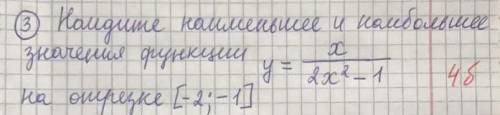 ③ Найдите наименьшее и наибольшее
значения функции y = x / (2x² - 1) 4б
на отрезке [-2; -1]